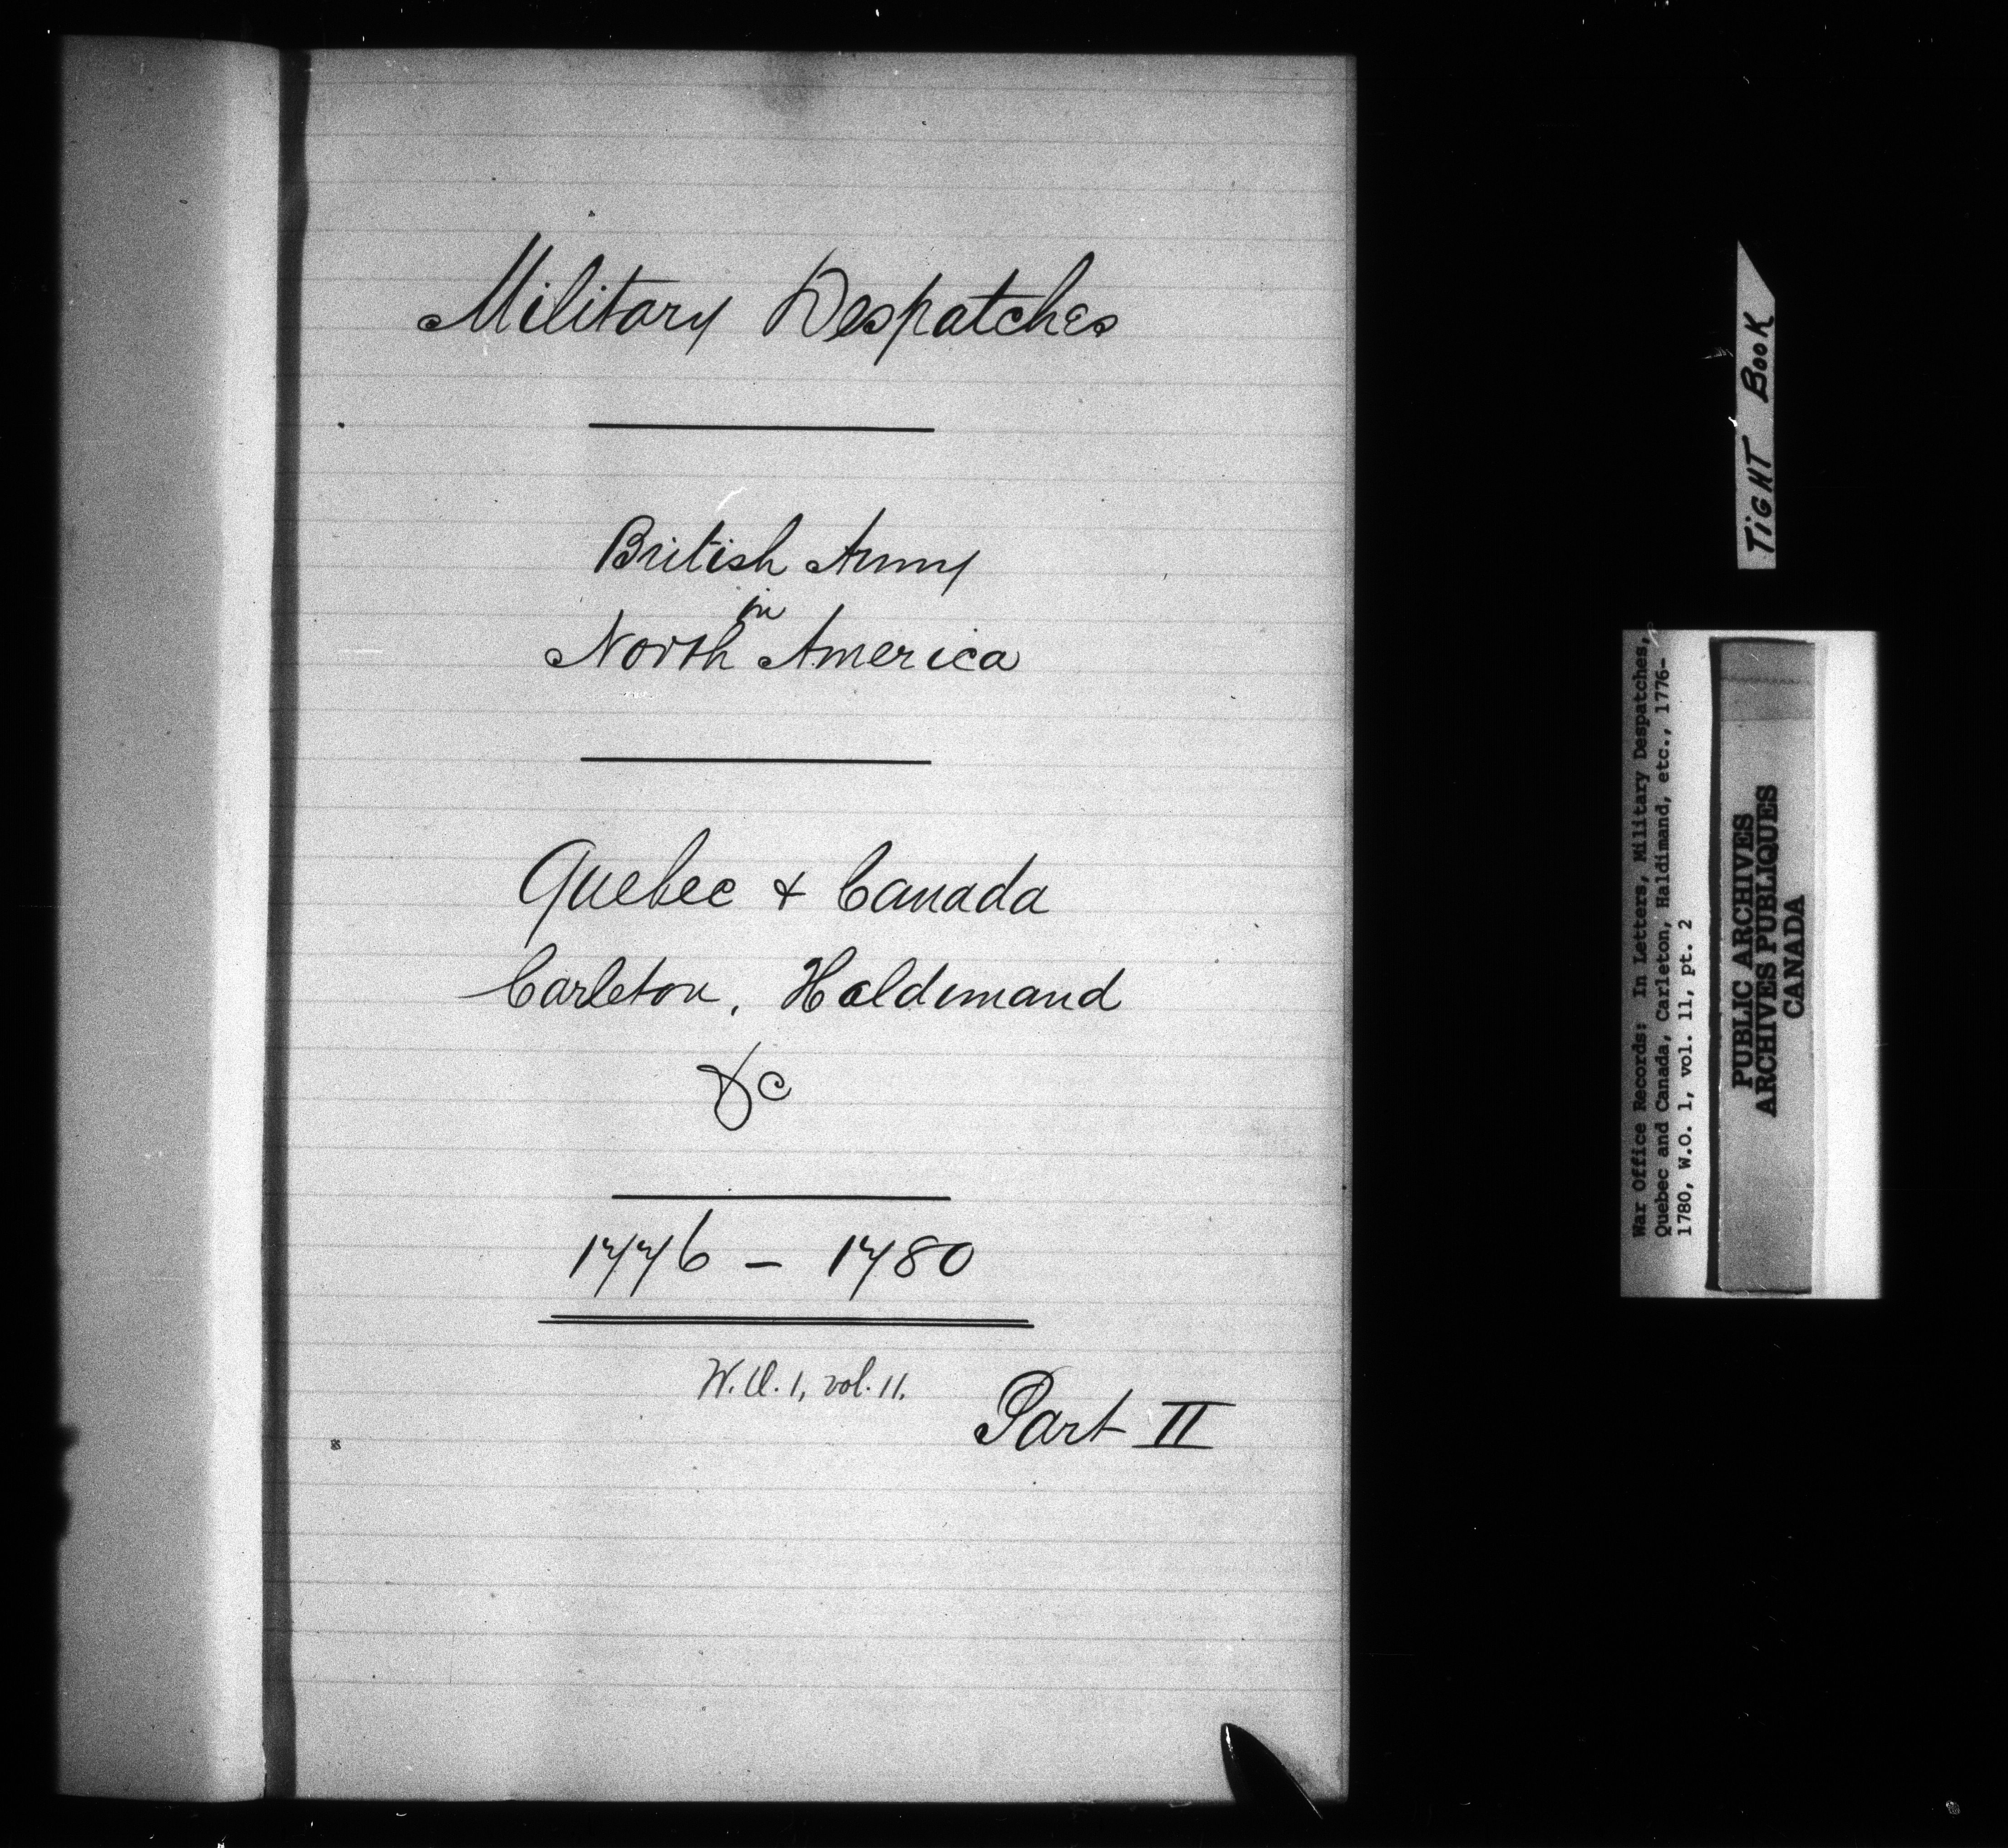 Military Despatches
British Army
in
North America
Quebec & Canada
Carleton, Haldimand
&c
1776 - 1780
W.O. 1, vol. 11.
Part II
TIGHT BOOK
War Office Records: In Letters, Military Despatches,
Quebec and Canada, Carleton, Haldimand, etc., 1776-
1780, W.O. 1, vol. 11, pt. 2
PUBLIC ARCHIVES
ARCHIVES PUBLIQUES
CANADA